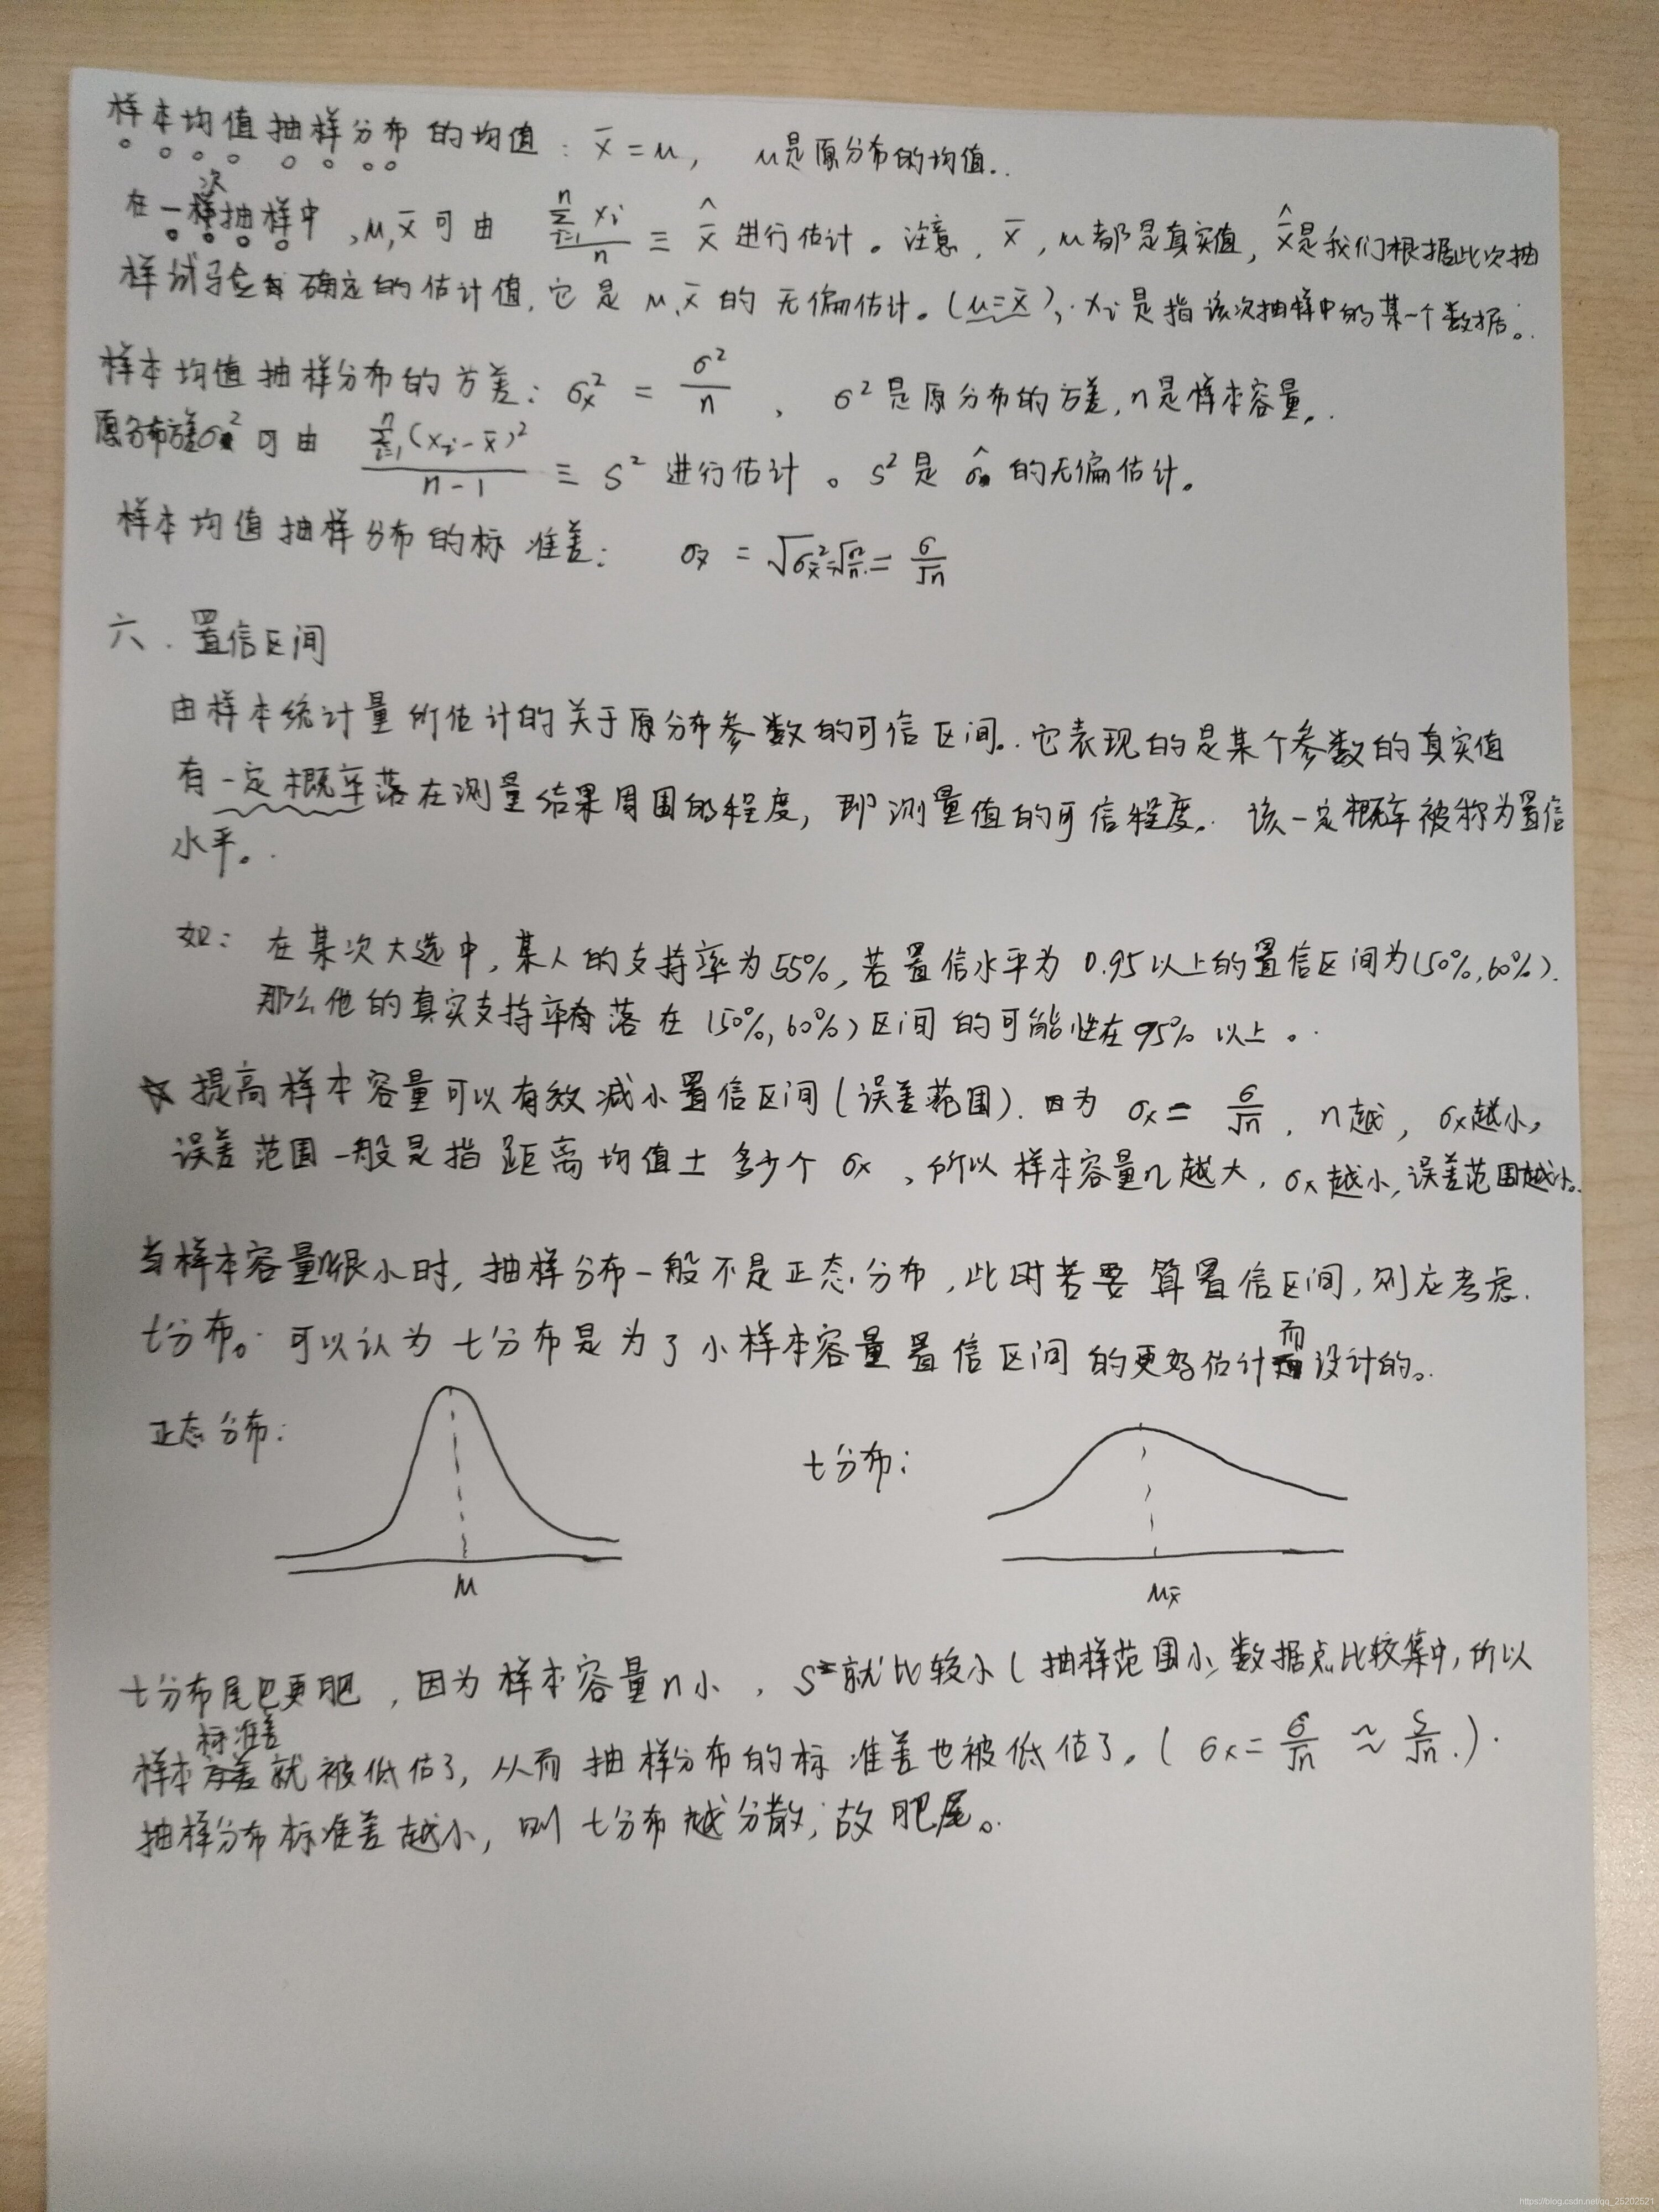 样本均值抽样分布的均值: x̄ = μ, μ是原分布的均值.
在一次抽样中, μ, x̄ 可由 (∑_{i=1}^{n} xᵢ)/n ≡ x̄̂ 进行估计。注意, x̄, μ都是真实值, x̄̂是我们根据此次抽
样试验 确定的估计值, 它是 μ、x̄ 的无偏估计。(μ=x̄), xᵢ 是指该次抽样中的某一个数据。
样本均值抽样分布的方差: σₓ² = σ²/n , σ² 是原分布的方差, n是样本容量.
原分布方差σ² 可由 (∑_{i=1}^{n} (xᵢ-x̄)²)/(n-1) ≡ S² 进行估计。S² 是 σ̂ 的无偏估计。
样本均值抽样分布的标准差: σx̄ = √σx̄² = √(σ²/n) = σ/√n
六. 置信区间
由样本统计量所估计的关于原分布参数的可信区间. 它表现的是某个参数的真实值
有一定概率落在测量结果周围的程度, 即测量值的可信程度. 该一定概率被称为置信
水平。
如: 在某次大选中, 某人的支持率为55%, 若置信水平为 0.95以上的置信区间为(50%, 60%).
那么他的真实支持率 落在 (50%, 60%) 区间的可能性在95% 以上。
☆ 提高样本容量可以有效减小置信区间(误差范围). 因为 σₓ = σ/√n , n越, σₓ越小,
误差范围一般是指距离均值±多少个 σₓ , 所以样本容量n越大, σₓ越小, 误差范围越小.
当样本容量很小时, 抽样分布一般不是正态分布, 此时若要算置信区间, 则应考虑
t分布。可以认为 t分布是为了小样本容量置信区间的更好估计而设计的。
正态分布: t分布:
μ μx̄
t分布尾巴更肥, 因为样本容量n小, S就比较小(抽样范围小, 数据点比较集中, 所以
样本标准差就被低估了, 从而抽样分布的标准差也被低估了。( σₓ = σ/√n ≈ S/√n ).
抽样分布标准差越小, 则 t分布越分散, 故肥尾。
https://blog.csdn.net/qq_25202521